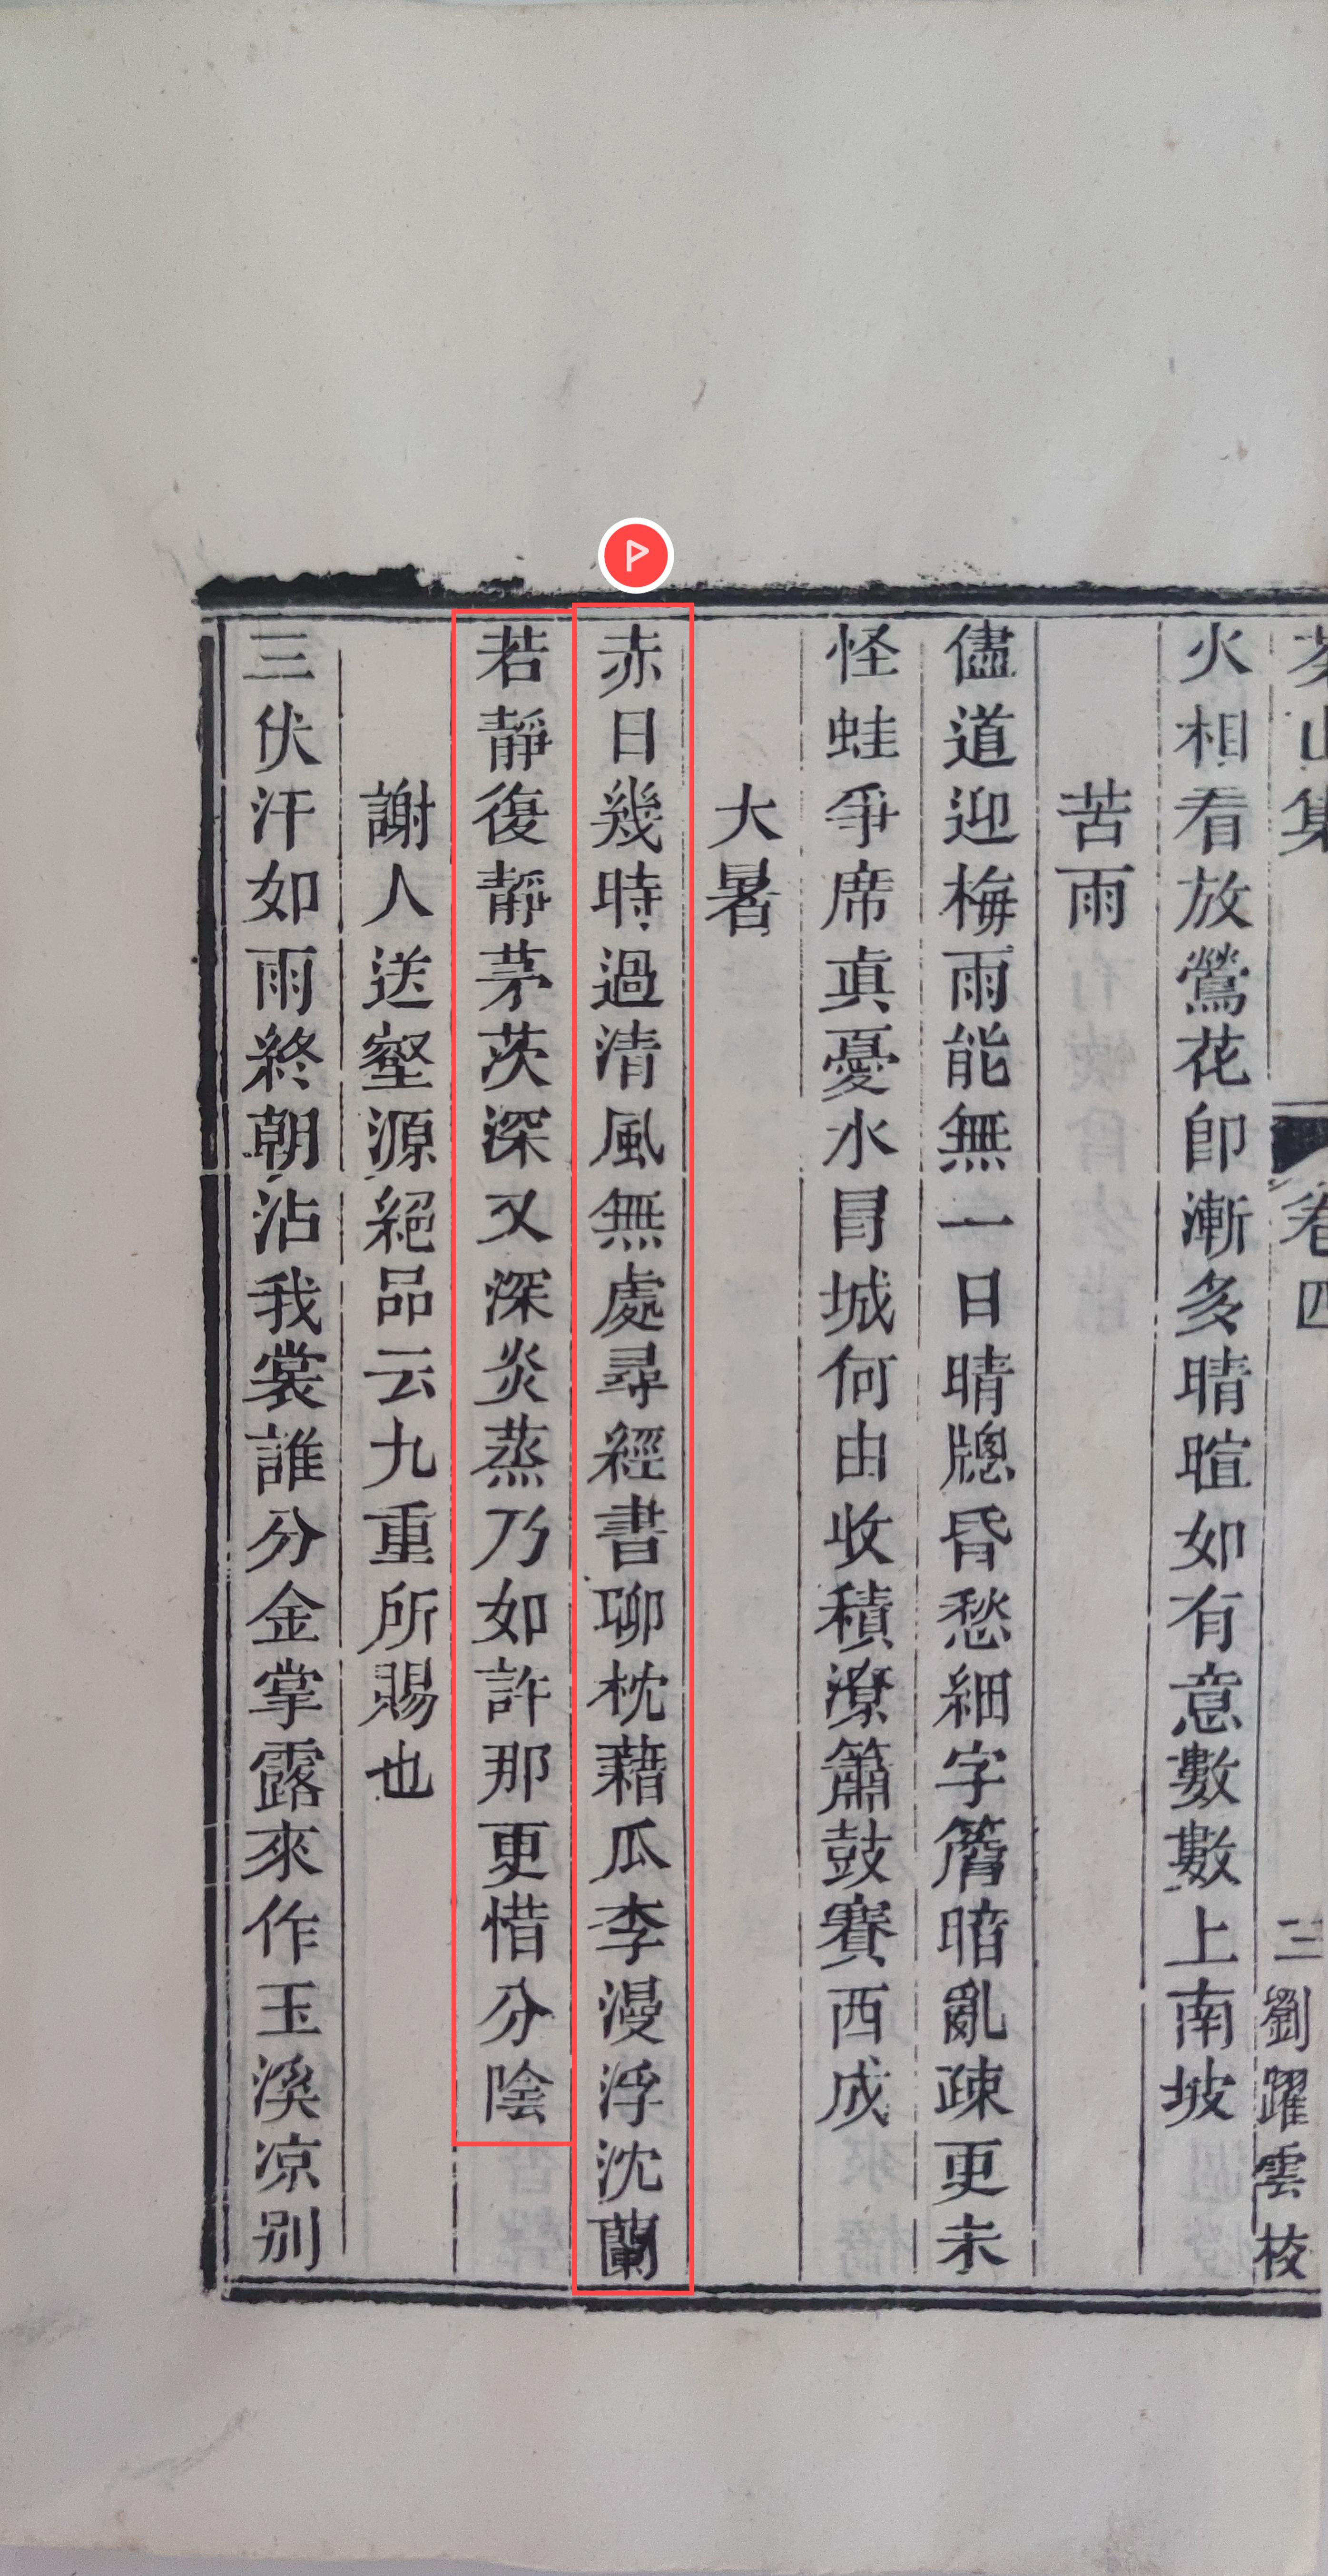 茶山集 卷四 三 劉躍雲校
火相看放鶯花卽漸多晴暄如有意數數上南坡
苦雨
儘道迎梅雨能無一日晴牕昏愁細字簷暗亂疎更未
怪蛙爭席眞憂水冒城何由收積潦簫鼓賽西成
大暑
赤日幾時過清風無處尋經書聊枕藉瓜李漫浮沈蘭
若靜復靜茅茨深又深炎蒸乃如許那更惜分陰
謝人送壑源絕品云九重所賜也
三伏汗如雨終朝沾我裳誰分金掌露來作玉溪凉别